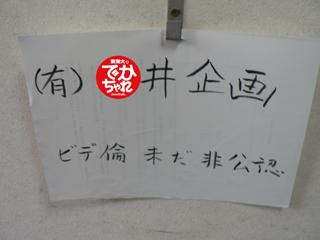 (有) でかちゃれ 井企画
ビデ倫 未だ非公認